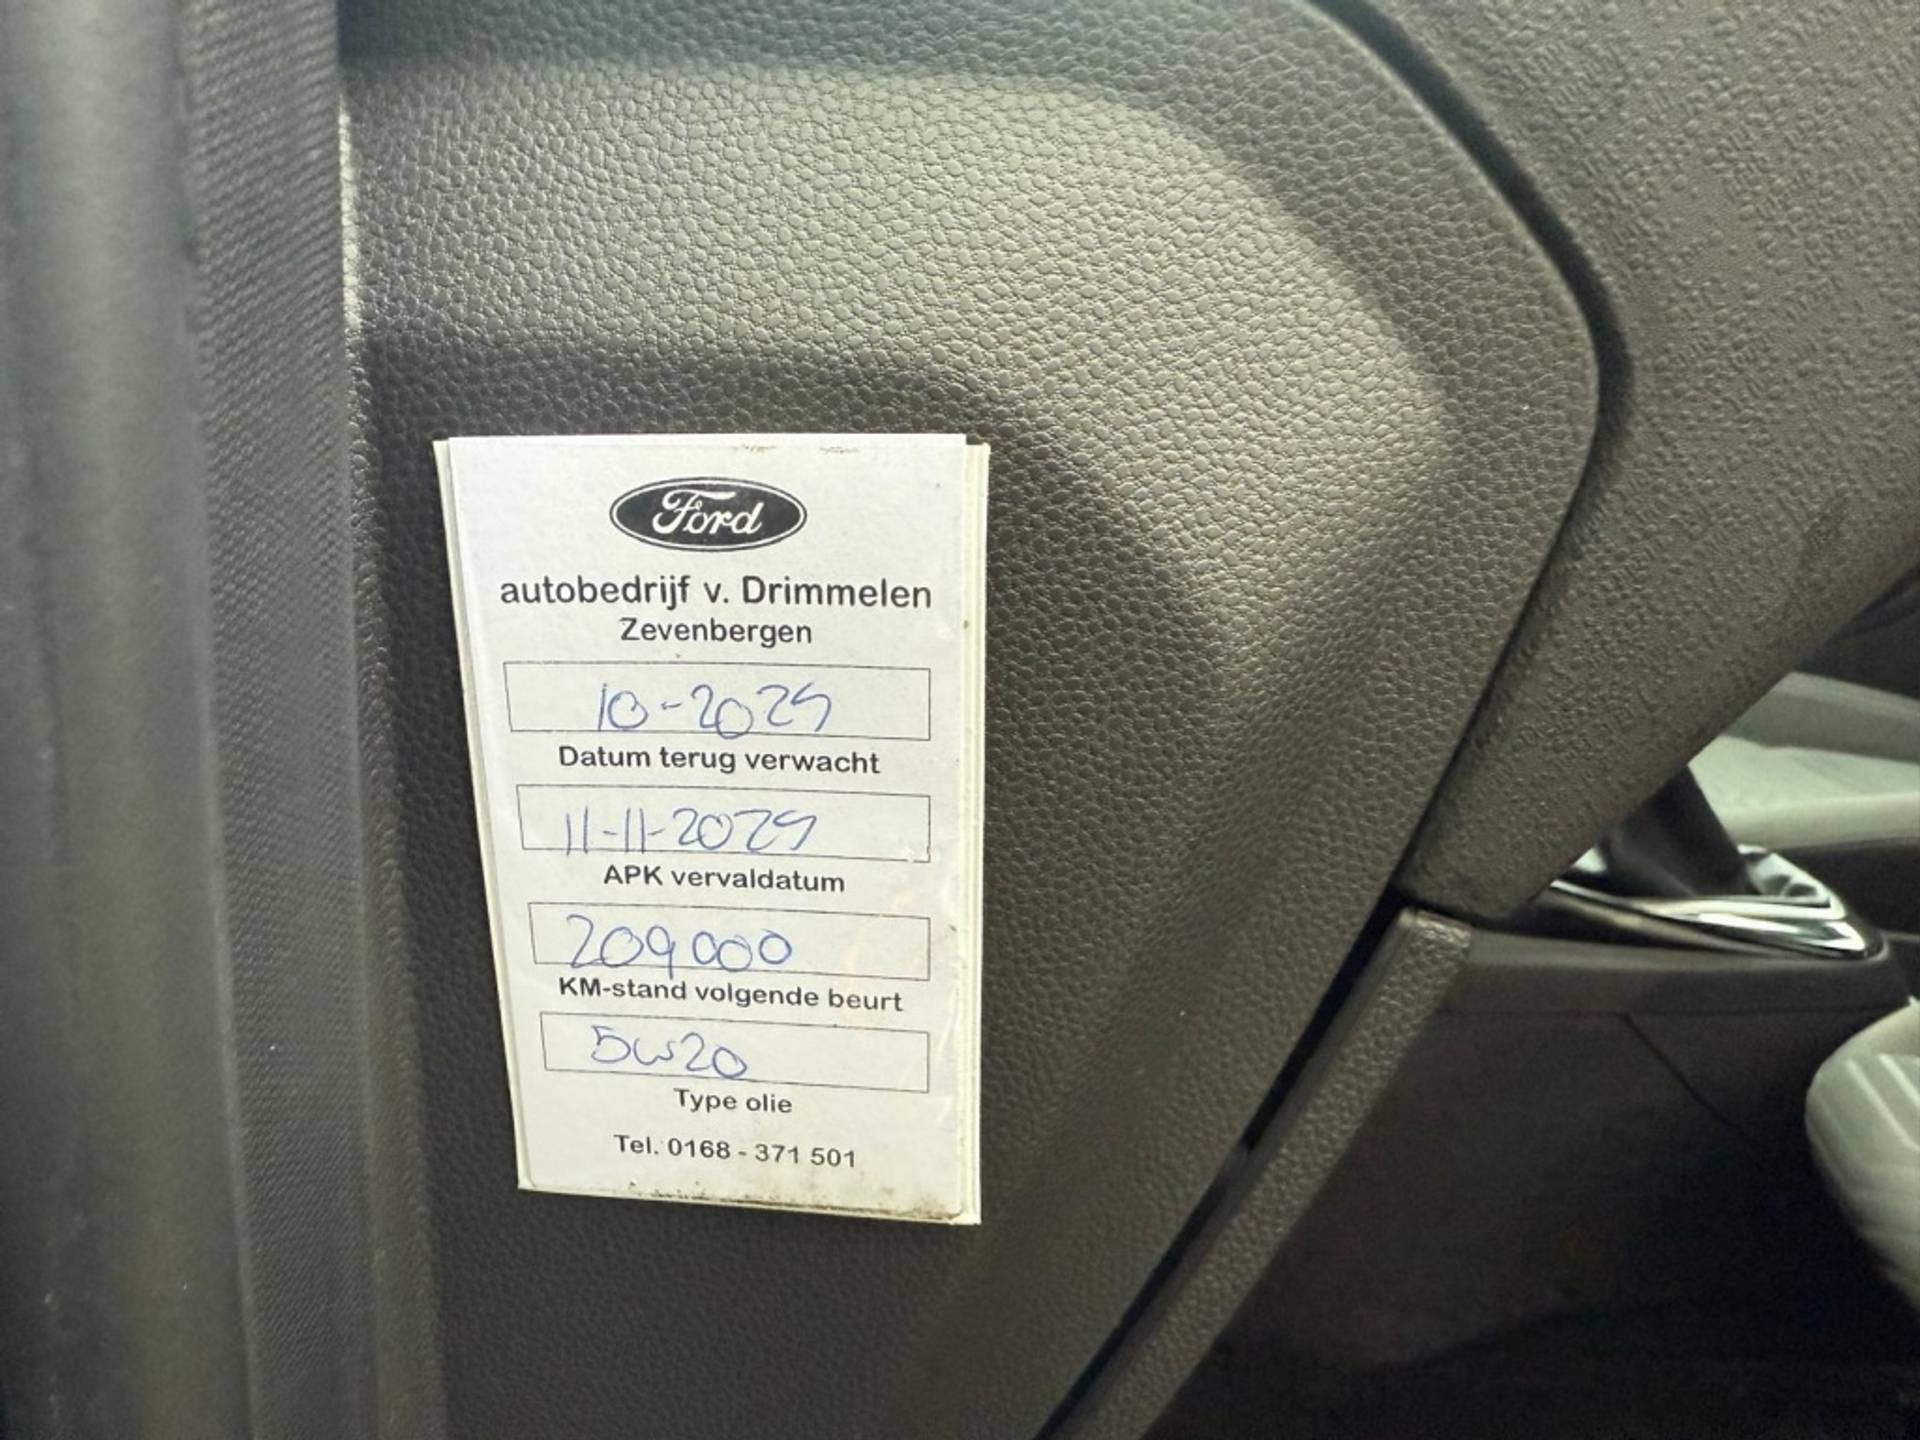 Ford
autobedrijf v. Drimmelen
Zevenbergen
10-2025
Datum terug verwacht
11-11-2025
APK vervaldatum
209000
KM-stand volgende beurt
5w20
Type olie
Tel. 0168 - 371 501